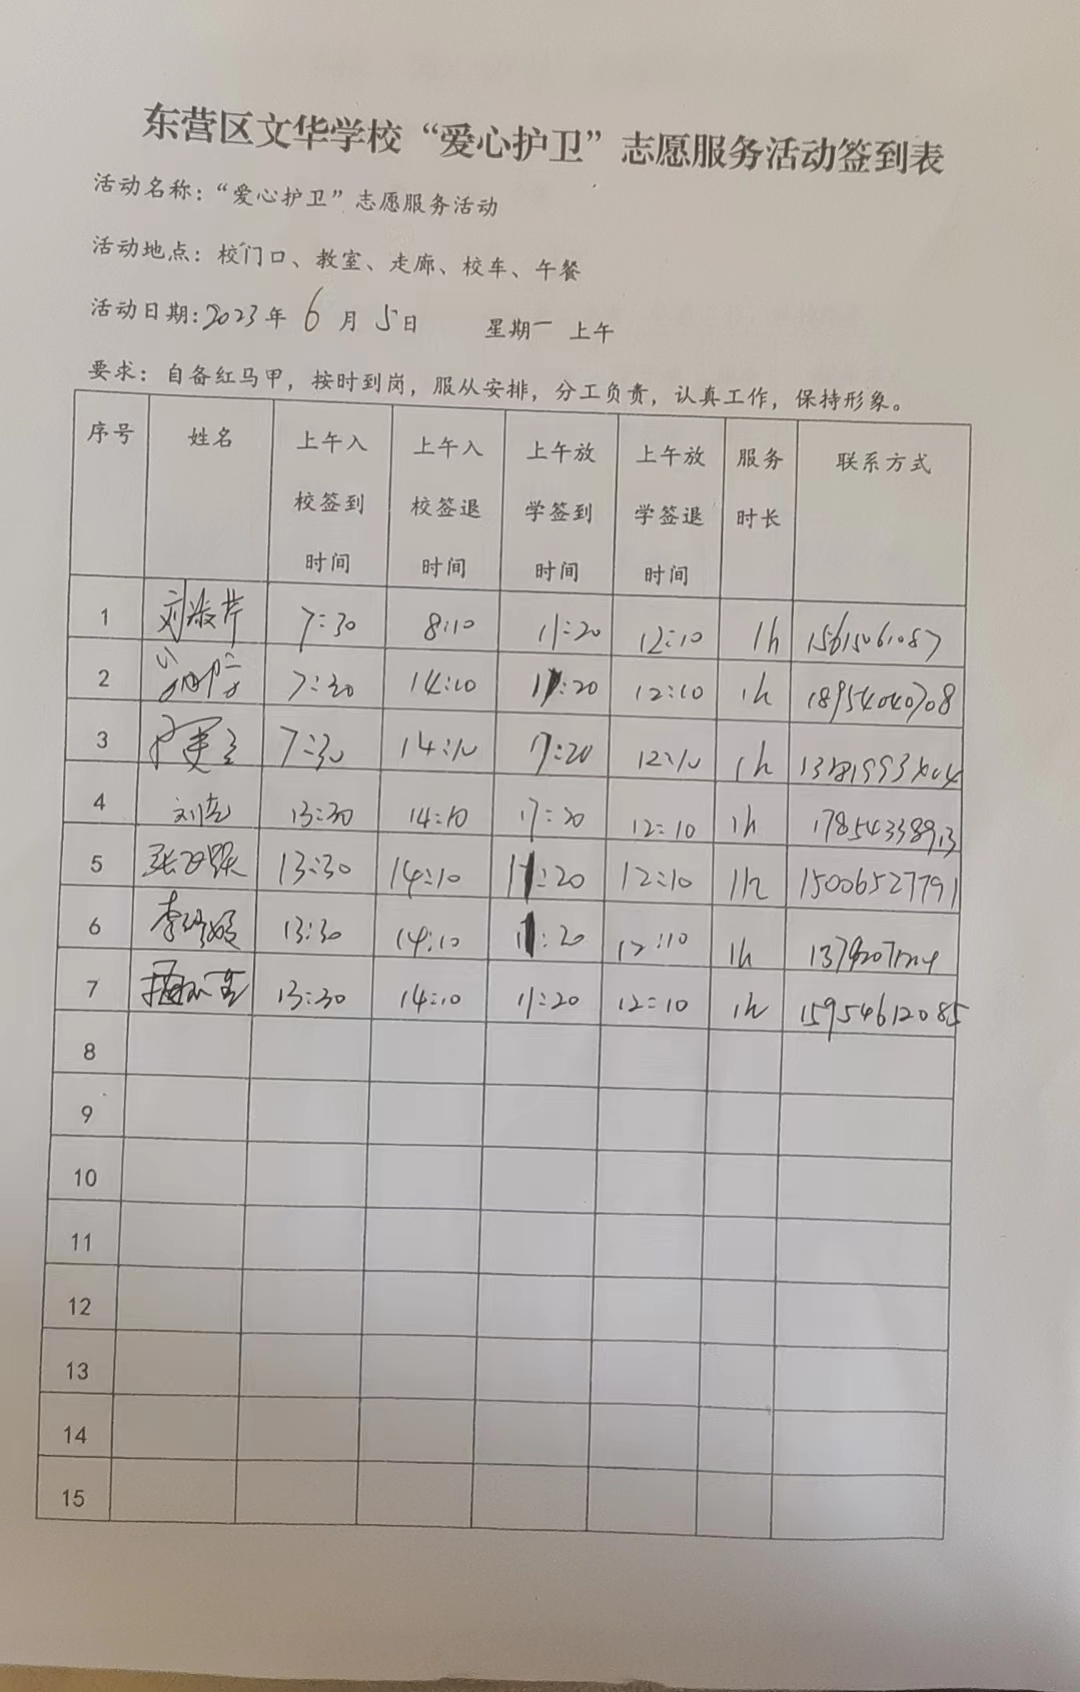 东营区文华学校“爱心护卫”志愿服务活动签到表
活动名称：“爱心护卫”志愿服务活动
活动地点：校门口、教室、走廊、校车、午餐
活动日期：2023年 6 月 5日 星期一 上午
要求：自备红马甲，按时到岗，服从安排，分工负责，认真工作，保持形象。
序号 姓名 上午入校签到时间 上午入校签退时间 上午放学签到时间 上午放学签退时间 服务时长 联系方式
1 刘淑芹 7:30 8:10 11:20 12:10 1h 15615061087
2 7:30 14:10 17:20 12:10 1h 18954040708
3 7:30 14:10 17:20 12:10 1h
4 13:30 14:10 17:20 12:10 1h 17854338913
5 13:30 14:10 11:20 12:10 1h 15006527791
6 13:30 14:10 11:20 12:10 1h
7 13:30 14:10 11:20 12:10 1h 15954612085
8
9
10
11
12
13
14
15